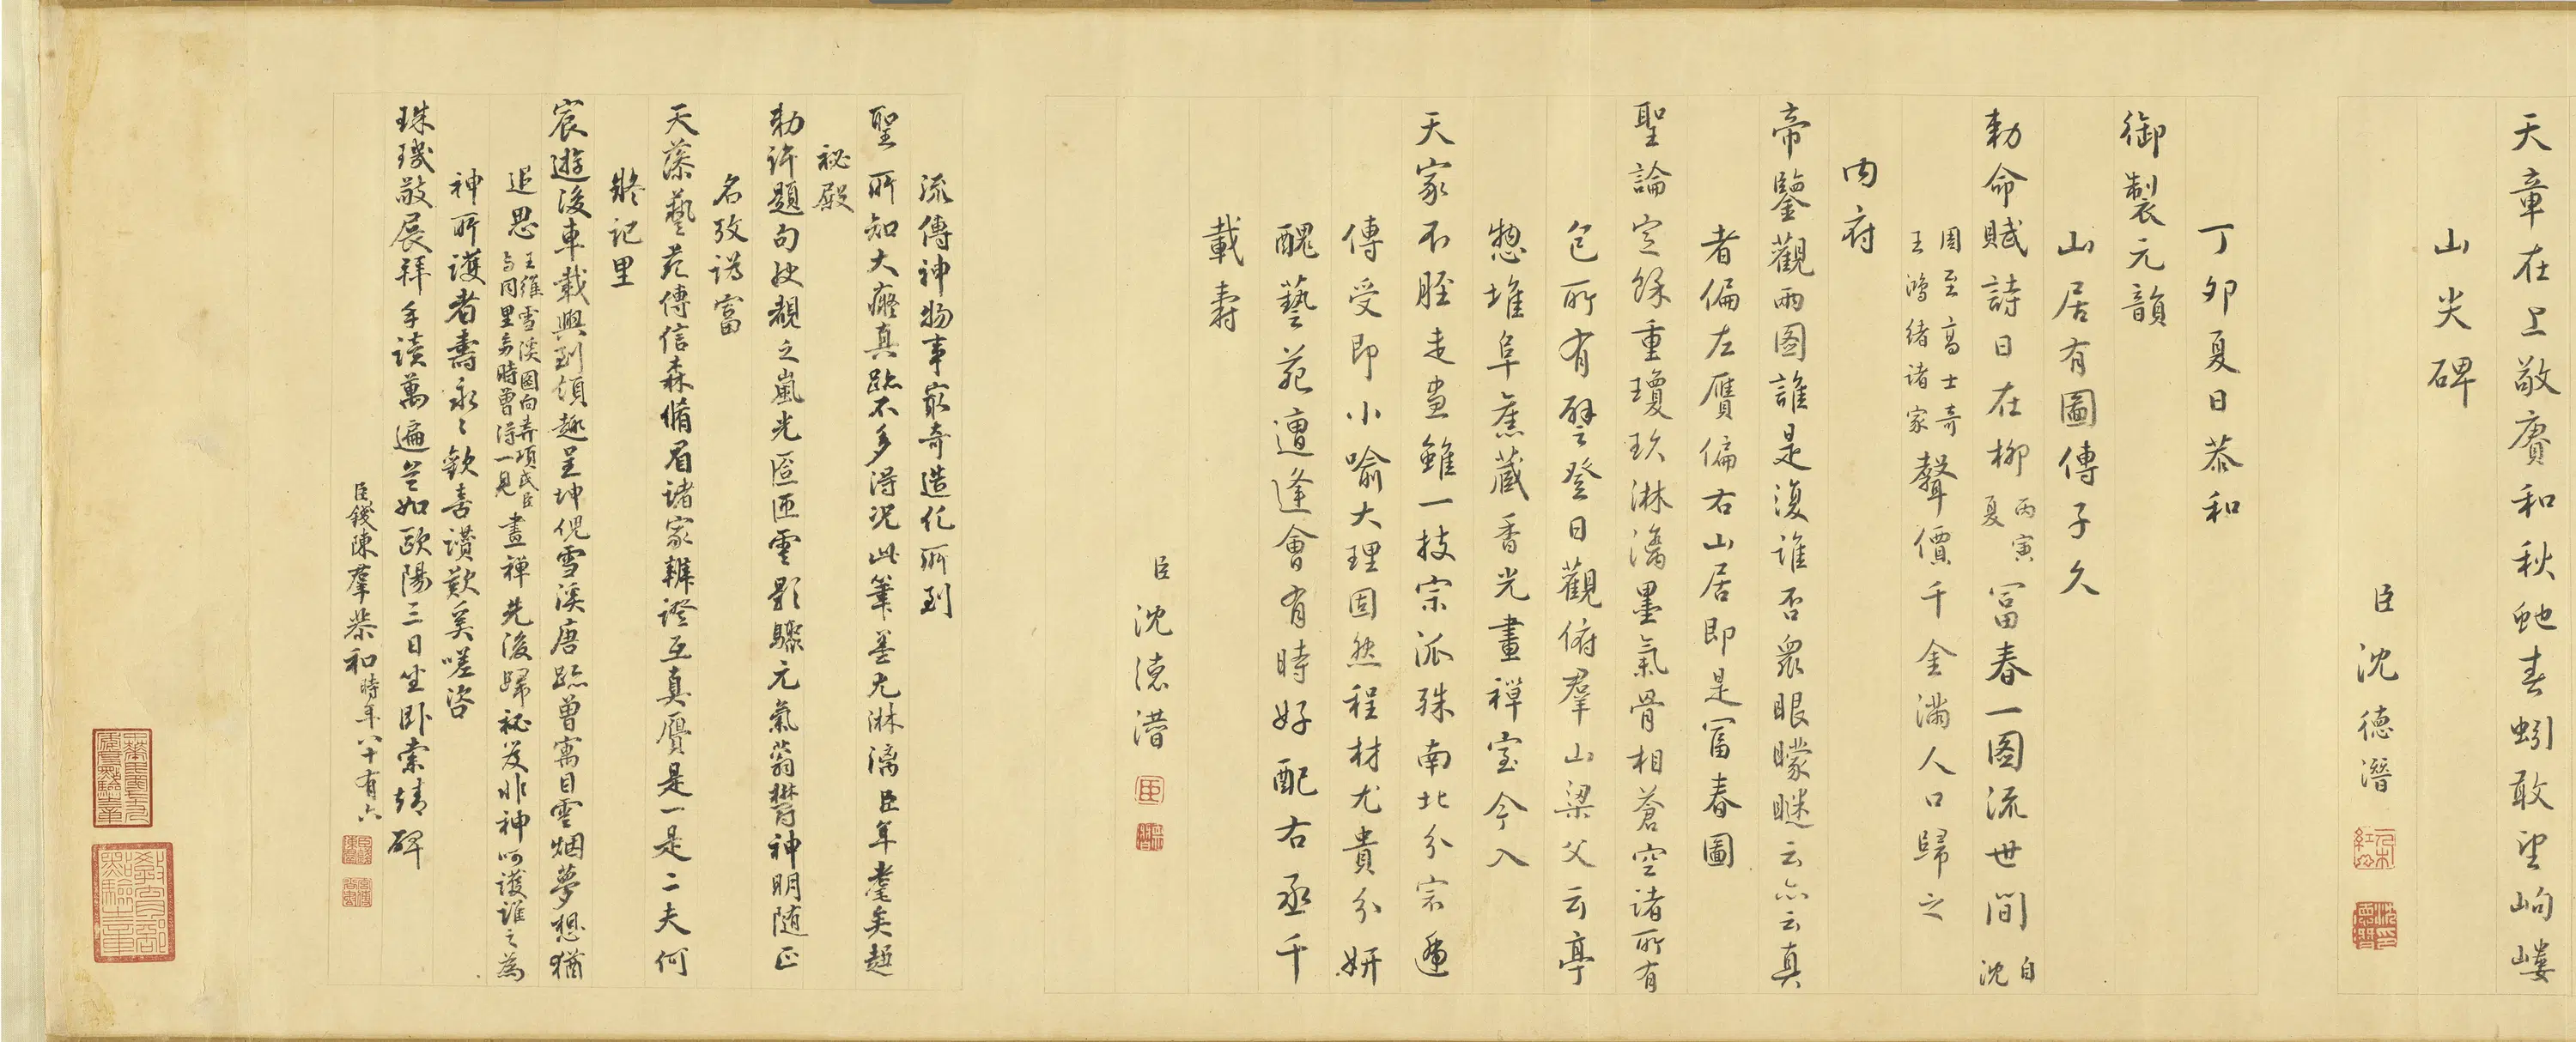 天章在上敬賡和秋虵春蚓敢望岣嶁
山尖碑
臣沈德潛
丁卯夏日恭和
御製元韻
山居有圖傳子久
勅命賦詩日在柳丙寅夏富春一圖流世間自沈
周至高士奇王鴻緒諸家聲價千金滿人口歸之
內府
帝鑒觀兩圖誰是復誰否眾眼矇瞇云亦云真
者偏左贋偏右山居即是富春圖
聖論定餘重瓊玖淋漓墨氣骨相蒼空諸所有
包所有譬登日觀俯羣山梁父云亭
惣堆阜舊藏香光畫禪室今入
天家不脛走畫雖一技宗派殊南北分宗遞
傳受即小喻大理固然程材尤貴分妍
醜藝苑遭逢會有時好配右丞千
載壽
臣沈德潛
流傳神物事最奇造化所到
聖所知大癡真跡不多得況此筆墨尤淋漓臣年耄矣趨
祕殿
勅許題句快覩之嵐光匼匝雲影驟元氣蓊鬱神明隨正
名攷譌富
天藻藝苑傳信森脩眉諸家辨證互真贋是一是二夫何
疑記里
宸遊後車載興到領趣呈坤倪雪溪唐跡曾寓目雲烟夢想猶
追思王維雪溪圖向弆項氏臣與同里當時曾得一見畫禪先後歸祕笈非神呵護誰之為
神所護者壽永永歡喜讚歎奚嗟咨
珠璣敬展拜手讀萬遍豈如歐陽三日坐卧索靖碑
臣錢陳羣恭和時年八十有六